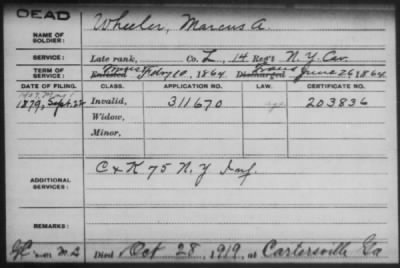 DEAD
NAME OF SOLDIER: Wheeler, Marcus A.
SERVICE: Late rank, Co. L, 14 Reg't N.Y. Cav.
TERM OF SERVICE: Enlisted Feby 10, 1864. Discharged June 26 1864.
DATE OF FILING. CLASS. APPLICATION NO. LAW. CERTIFICATE NO.
1907, May 1
1879, Sept. 22 Invalid, 311670 age 203836
Widow,
Minor,
ADDITIONAL SERVICES: C & K 75 N. Y Inf.
REMARKS:
Died Oct 28, 1919, at Cartersville Ga